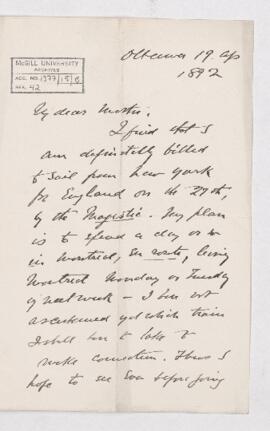 McGILL UNIVERSITY
ARCHIVES
ACC. NO. 1377/15/6
REF. 42
Ottawa 19 Ap
1892
My dear
I find that I
am definitely billed
to sail from New York
for England on the 27th,
by the Magistic. My plan
is to spend a day or so
in Montreal, en route, leaving
Montreal Monday or Tuesday
of next week - I have not
ascertained yet which train
I shall have to take to
make connection. Thus I
hope to see you before going